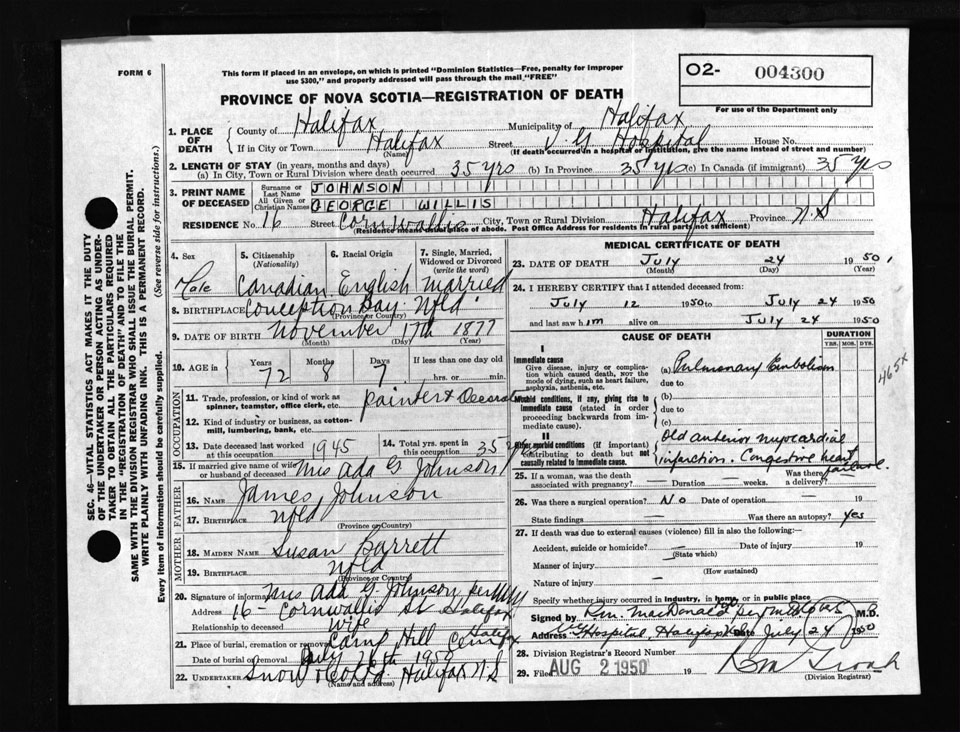 FORM 6
This form if placed in an envelope, on which is printed "Dominion Statistics—Free, penalty for improper
use $300," and properly addressed will pass through the mail "FREE"
O2- 004300
For use of the Department only
PROVINCE OF NOVA SCOTIA—REGISTRATION OF DEATH
1. PLACE OF DEATH
County of Halifax Municipality of Halifax
If in City or Town Halifax Street V G Hospital House No.
(Name) (If death occurred in a hospital or institution, give the name instead of street and number)
2. LENGTH OF STAY (in years, months and days)
(a) In City, Town or Rural Division where death occurred 35 yrs (b) In Province 35 yrs (c) In Canada (if immigrant) 35 yrs
3. PRINT NAME OF DECEASED
Surname or Last Name JOHNSON
All Given or Christian Names GEORGE WILLIS
RESIDENCE No. 16 Street Cornwallis City, Town or Rural Division Halifax Province N.S
(Residence means usual place of abode. Post Office Address for residents in rural parts not sufficient)
4. Sex
Male
5. Citizenship (Nationality)
Canadian
6. Racial Origin
English
7. Single, Married, Widowed or Divorced (write the word)
married
8. BIRTHPLACE Conception Bay Nfld
(Province or Country)
9. DATE OF BIRTH November 17th 1877
(Month) (Day) (Year)
10. AGE in Years 72 Months 8 Days 7 If less than one day old
hrs. or min.
OCCUPATION
11. Trade, profession, or kind of work as spinner, teamster, office clerk, etc. Painter & Decorator
12. Kind of industry or business, as cotton-mill, lumbering, bank, etc.
13. Date deceased last worked at this occupation 1945
14. Total yrs. spent in this occupation 35 y
15. If married give name of wife or husband of deceased Mrs Ada G Johnson
FATHER
16. NAME James Johnson
17. BIRTHPLACE Nfld
(Province or Country)
MOTHER
18. MAIDEN NAME Susan Barrett
19. BIRTHPLACE Nfld
(Province or Country)
20. Signature of informant Mrs Ada G Johnson per
Address 16 - Cornwallis St Halifax
Relationship to deceased wife
21. Place of burial, cremation or removal Camp Hill Cem Halifax
Date of burial or removal July 26th 1950
22. UNDERTAKER Snow & Co Ltd. Halifax N S
(Name and address)
MEDICAL CERTIFICATE OF DEATH
23. DATE OF DEATH July 24 1950
(Month) (Day) (Year)
24. I HEREBY CERTIFY that I attended deceased from:
July 12 1950 to July 24 1950
and last saw him alive on July 24 1950
CAUSE OF DEATH
DURATION
YRS. MOS. DYS.
I
Immediate cause
Give disease, injury or complication which caused death, not the mode of dying, such as heart failure, asphyxia, asthenia, etc.
(a) Pulmonary Embolism
due to
465x
Morbid conditions, if any, giving rise to immediate cause (stated in order proceeding backwards from immediate cause).
(b)
due to
(c)
II
Other morbid conditions (if important) contributing to death but not causally related to immediate cause.
Old anterior myocardial
infarction. Congestive heart
failure.
25. If a woman, was the death associated with pregnancy? — Duration — weeks. Was there a delivery? —
26. Was there a surgical operation? No Date of operation — 19
State findings — Was there an autopsy? Yes
27. If death was due to external causes (violence) fill in also the following:—
Accident, suicide or homicide? — Date of injury 19
(State which)
Manner of injury
(How sustained)
Nature of injury —
Specify whether injury occurred in industry, in home, or in public place
Signed by Ken. MacDonald per M.D.
Address V G Hospital Halifax Date July 24 1950
28. Division Registrar's Record Number
29. Filed AUG 2 1950 19
(Division Registrar)
SEC. 46—VITAL STATISTICS ACT MAKES IT THE DUTY
OF THE UNDERTAKER OR PERSON ACTING AS UNDER-
TAKER TO OBTAIN ALL THE PARTICULARS REQUIRED
IN THE "REGISTRATION OF DEATH" AND TO FILE THE
SAME WITH THE DIVISION REGISTRAR WHO SHALL ISSUE THE BURIAL PERMIT.
WRITE PLAINLY WITH UNFADING INK. THIS IS A PERMANENT RECORD.
Every item of information should be carefully supplied. (See reverse side for instructions.)